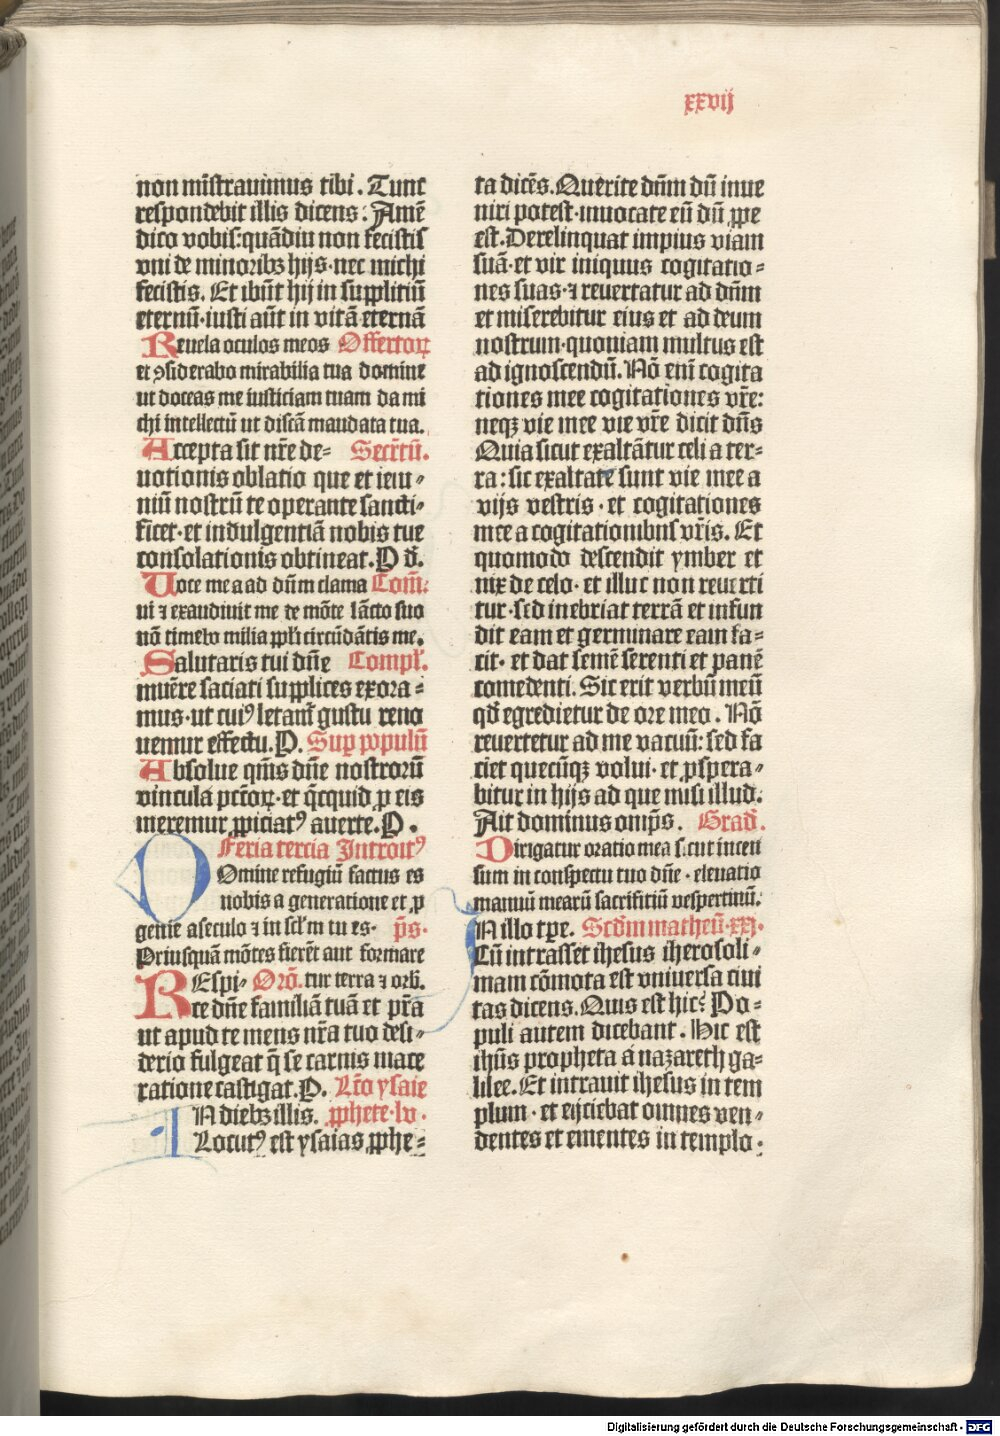 xxvij
non mīstravimus tibi. Tunc
respondebit illis dicens: Amē
dico vobis: quādiu non fecistis
vni de minoribꝫ hijs· nec michi
fecistis. Et ibūt hij in supplitiū
eternū· iusti aūt in vitā eternā
Revela oculos meos Offertoꝝ
et ꝯsiderabo mirabilia tua domine
ut doceas me iusticiam tuam da mi
chi intellectū ut discā mandata tua.
Accepta sit nr̄e de- Secr̄tū.
uotionis oblatio que et ieiu-
niū nostrū te operante sancti-
ficet· et indulgentiā nobis tue
consolationis obtineat. P d̄.
Voce mea ad dn̄m clama Com̄:
ui ⁊ exaudiuit me de mōte sācto suo
nō timebo milia ppl̄i circūdātis me.
Salutaris tui dn̄e Compl̄.
munēre saciati supplices exora-
mus· ut cuiꝰ letam̄ gustu reno
uemur effectu. P. Suꝑ populū
Absolue qm̄s dn̄e nostrorū
vincula pctōꝝ· et q̄cquid ꝓ eis
meremur ꝓpiciatꝰ auerte. P.
Feria tercia Introitꝰ
DOmine refugiū factus es
nobis a generatione et ꝓ
genie a seculo ⁊ in scl̄m tu es· p̄s.
Priusquā mōtes fierēt aut formare
REspi- Orō. tur terra ⁊ orb.
ce dn̄e familiā tuā et pr̄a
ut apud te mens nr̄a tuo desi-
derio fulgeat q̄ se carnis mace
ratione castigat. P. Lc̄o ysaie
IN diebꝫ illis. ꝓphete· lv·
Locutꝰ est ysaias ꝓphe-
ta dicēs. Querite dn̄m dū inue
niri potest· inuocate eū dū ꝓpe
est. Derelinquat impius viam
suā· et vir iniquus cogitatio-
nes suas· ⁊ reuertatur ad dn̄m
et miserebitur eius et ad deum
nostrum· quoniam multus est
ad ignoscendū. Nō enī cogita
tiones mee cogitationes vr̄e:
neqꝫ vie mee vie vr̄e dicit dn̄s
Quia sicut exaltātur celi a ter-
ra: sic exaltate sunt vie mee a
vijs vestris· et cogitationes
mee a cogitationibus vr̄is. Et
quomodo descendit ymber et
nix de celo· et illuc non reuerti
tur· sed inebriat terrā et infun
dit eam et germinare eam fa-
cit· et dat semē serenti et panē
comedenti. Sic erit verbū meū
qd̄ egredietur de ore meo. Nō
reuertetur ad me vacuū: sed fa
ciet quecūqꝫ volui· et ꝓspera-
bitur in hijs ad que misi illud.
Ait dominus omīps. Grad̄.
Dirigatur oratio mea sicut incen
sum in conspectu tuo dn̄e· eleuatio
manuū mearū sacrifitiū vespertinū.
IN illo tp̄e. Scd̄m matheū· xxi·
Cū intrasset ihesus iherosoli-
mam cōmota est vniuersa ciui
tas dicens. Quis est hic? Po-
puli autem dicebant. Hic est
ihūs propheta a nazareth ga-
lilee. Et intrauit ihesus in tem
plum· et eijciebat omnes ven-
dentes et ementes in templo·
Digitalisierung gefördert durch die Deutsche Forschungsgemeinschaft - DFG